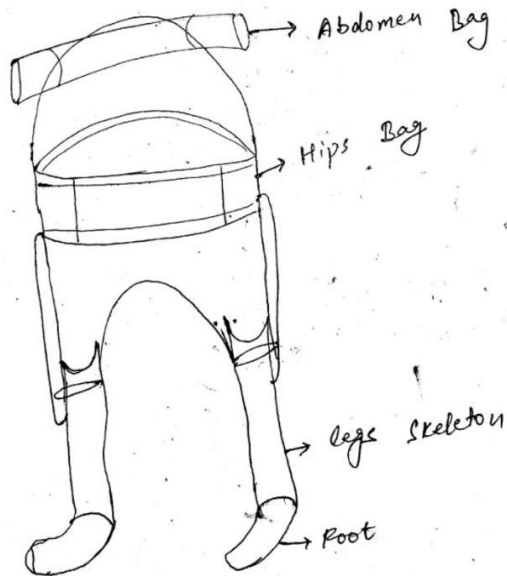 Abdomen Bag
Hips Bag
legs skeleton
Foot